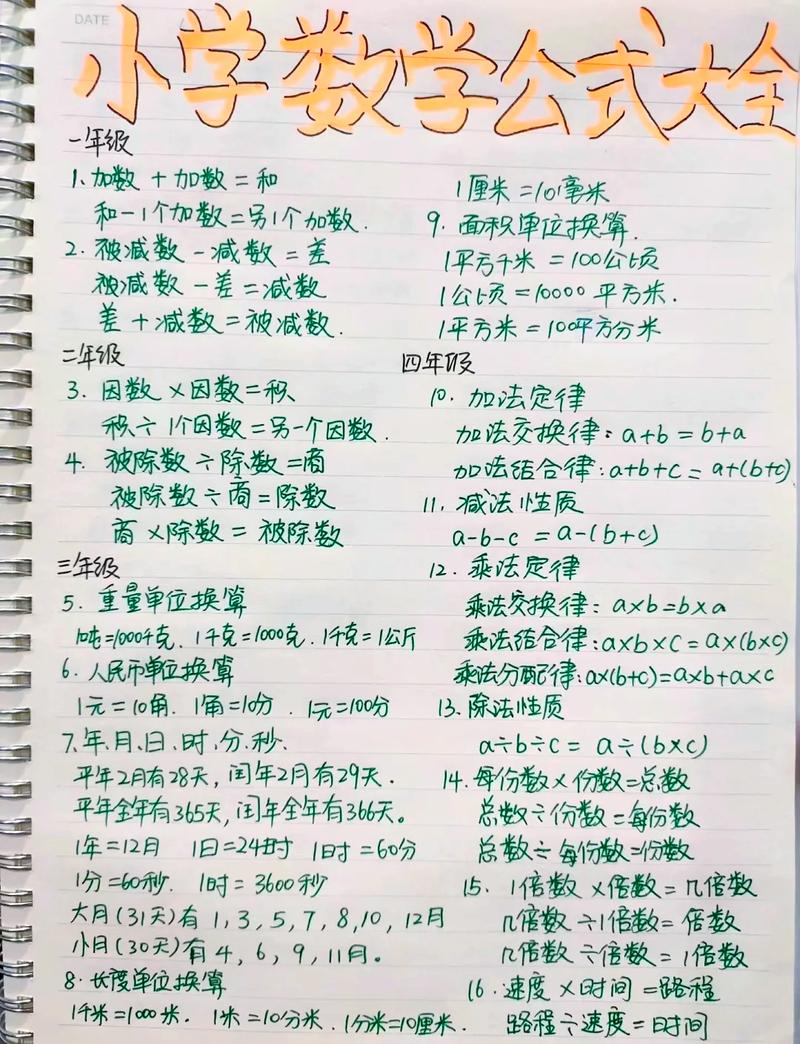 DATE
小学数学公式大全
一年级
1.加数 + 加数 = 和
和 - 1个加数 = 另1个加数.
2. 被减数 - 减数 = 差
被减数 - 差 = 减数
差 + 减数 = 被减数.
二年级
3. 因数 × 因数 = 积
积 ÷ 1个因数 = 另一个因数.
4. 被除数 ÷ 除数 = 商
被除数 ÷ 商 = 除数
商 × 除数 = 被除数
三年级
5. 重量单位换算
1吨=1000千克. 1千克=1000克. 1千克=1公斤
6. 人民币单位换算
1元=10角. 1角=10分. 1元=100分
7.年、月、日、时、分、秒、
平年2月有28天, 闰年2月有29天.
平年全年有365天, 闰年全年有366天。
1年=12月 1日=24时 1时=60分
1分=60秒. 1时=3600秒
大月(31天)有 1, 3, 5, 7, 8, 10, 12月
小月(30天)有 4, 6, 9, 11月。
8. 长度单位换算
1千米=1000米. 1米=10分米. 1分米=10厘米.
1厘米 = 10毫米
9. 面积单位换算.
1平方千米 = 100公顷
1公顷 = 10000 平方米.
1平方米 = 100平方分米
四年级
10. 加法定律
加法交换律: a+b = b+a
加法结合律: a+b+c = a+(b+c)
11. 减法性质
a-b-c = a-(b+c)
12. 乘法定律
乘法交换律: a×b=b×a
乘法结合律: a×b×c = a×(b×c)
乘法分配律: a×(b+c)=a×b+a×c
13. 除法性质
a÷b÷c = a÷(b×c)
14. 每份数 × 份数=总数
总数 ÷ 份数 = 每份数
总数 ÷ 每份数=份数
15. 1倍数 × 倍数 = 几倍数
几倍数 ÷ 1倍数 = 倍数
几倍数 ÷ 倍数 = 1倍数
16. 速度 × 时间 = 路程
路程 ÷ 速度 = 时间